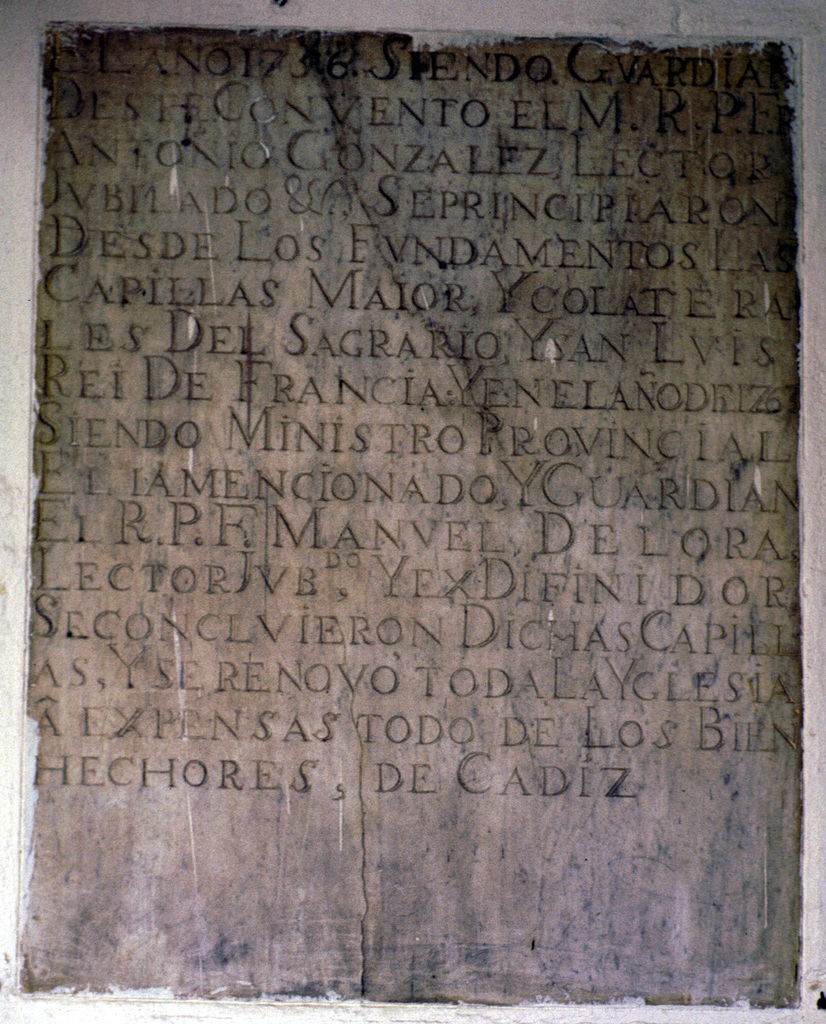 EL AÑO 1736. SIENDO. GVARDIAN
DESTE CONVENTO EL M. R. P. FR
ANTONIO GONZALEZ, LECTOR
JVBILADO &, SE PRINCIPIARON
DESDE LOS FVNDAMENTOS LAS
CAPILLAS MAIOR, Y COLATERA
LES DEL SAGRARIO, Y SAN LVIS
REI DE FRANCIA: Y EN EL AÑO DE
SIENDO MINISTRO PROVINCIAL
EL IA MENCIONADO, Y GUARDIAN
EL R. P. F. MANVEL, DE LORA,
LECTOR JVB.DO, Y EX DIFINIDOR
SE CONCLVIERON DICHAS CAPILL
AS, Y SE RENOVO TODA LA YGLESIA
Â EXPENSAS TODO DE LOS BIEN
HECHORES, DE CADIZ